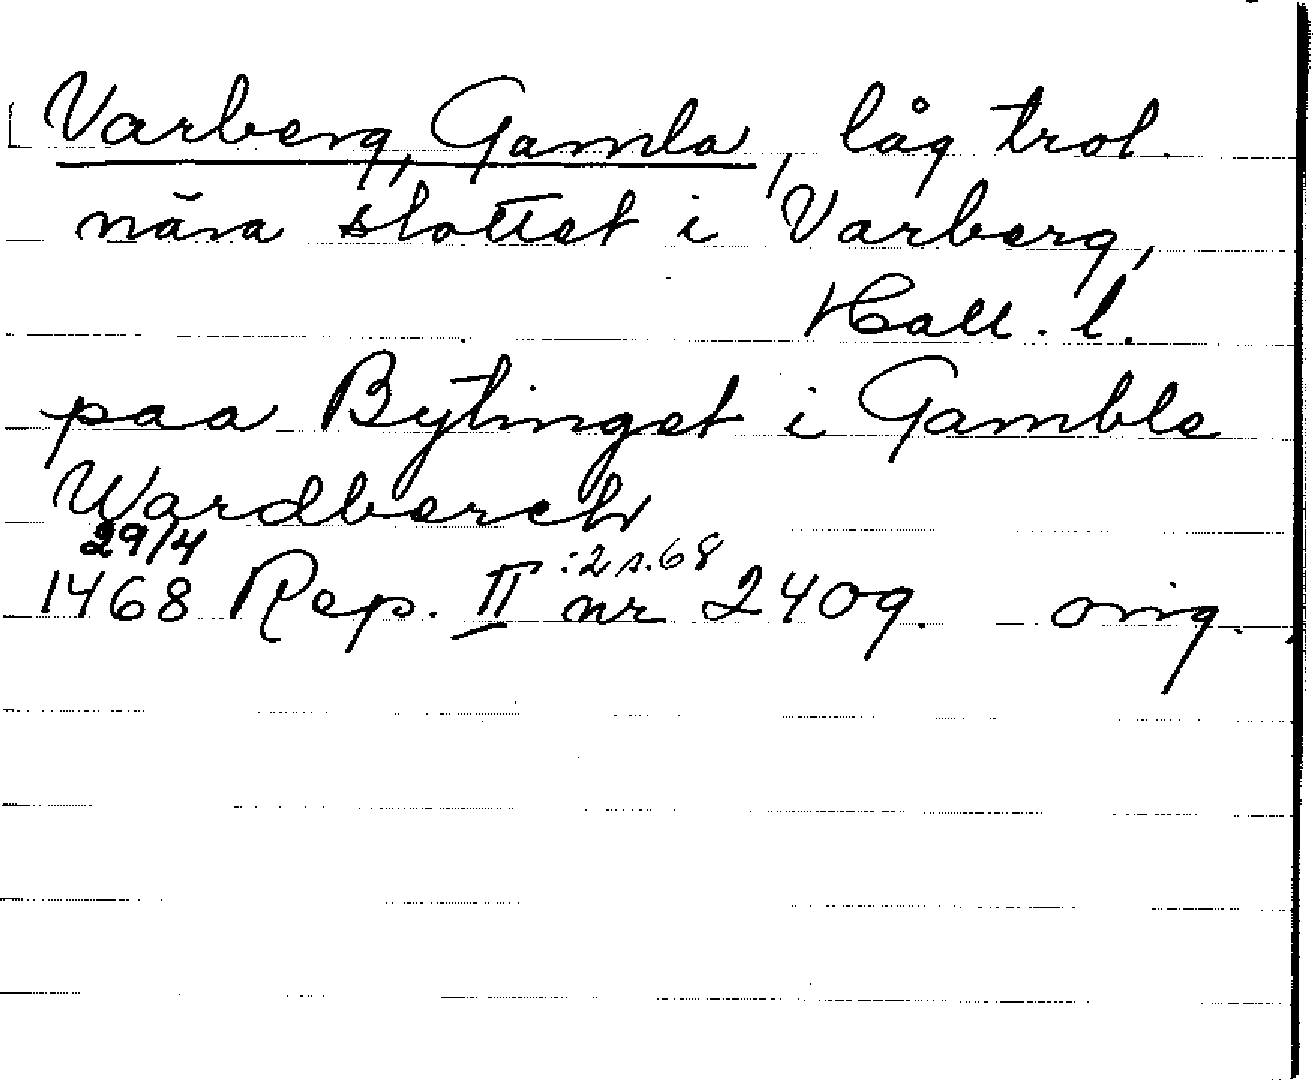 [Varberg, Gamla, låg trol.
nära slottet i Varberg,
Hall. l.
paa Bytinget i Gamble
Wardberch
29/4
1468 Rep. II :2 s.68 nr 2409. orig.